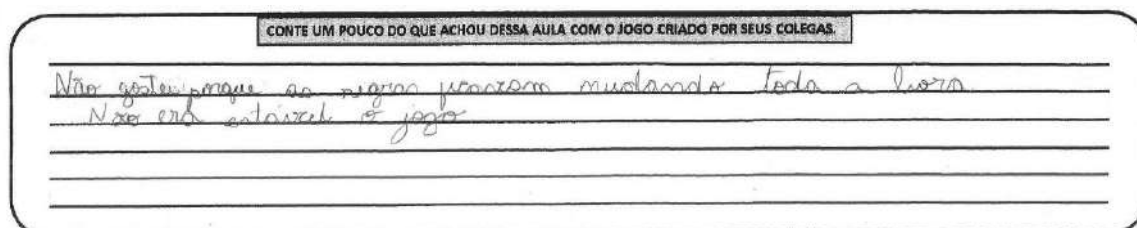 CONTE UM POUCO DO QUE ACHOU DESSA AULA COM O JOGO CRIADO POR SEUS COLEGAS.
Não gostei porque as regras ficaram mudando toda a hora
Não era o jogo